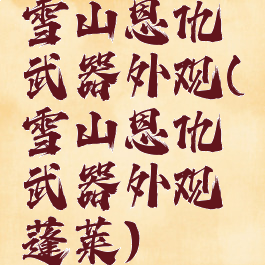 雪山恩仇
武器外观(
雪山恩仇
武器外观
蓬莱)